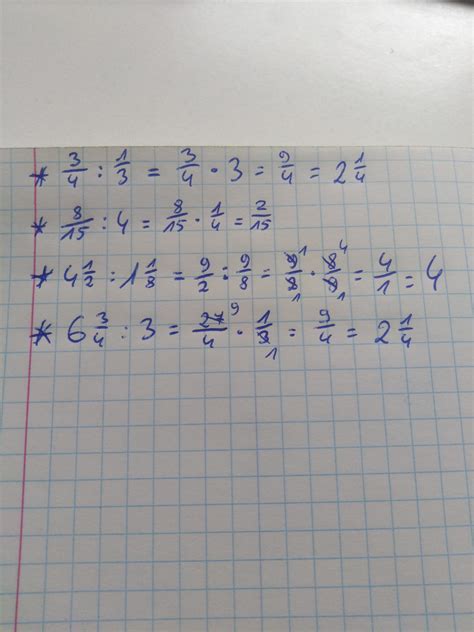 * 3/4 : 1/3 = 3/4 · 3 = 9/4 = 2 1/4
* 8/15 : 4 = 8/15 · 1/4 = 2/15
* 4 1/2 : 1 1/8 = 9/2 : 9/8 = 9̶ 1/8̶ 1 · 8̶ 4/9̶ 1 = 4/1 = 4
* 6 3/4 : 3 = 2̶7̶ 9/4 · 1/3̶ 1 = 9/4 = 2 1/4